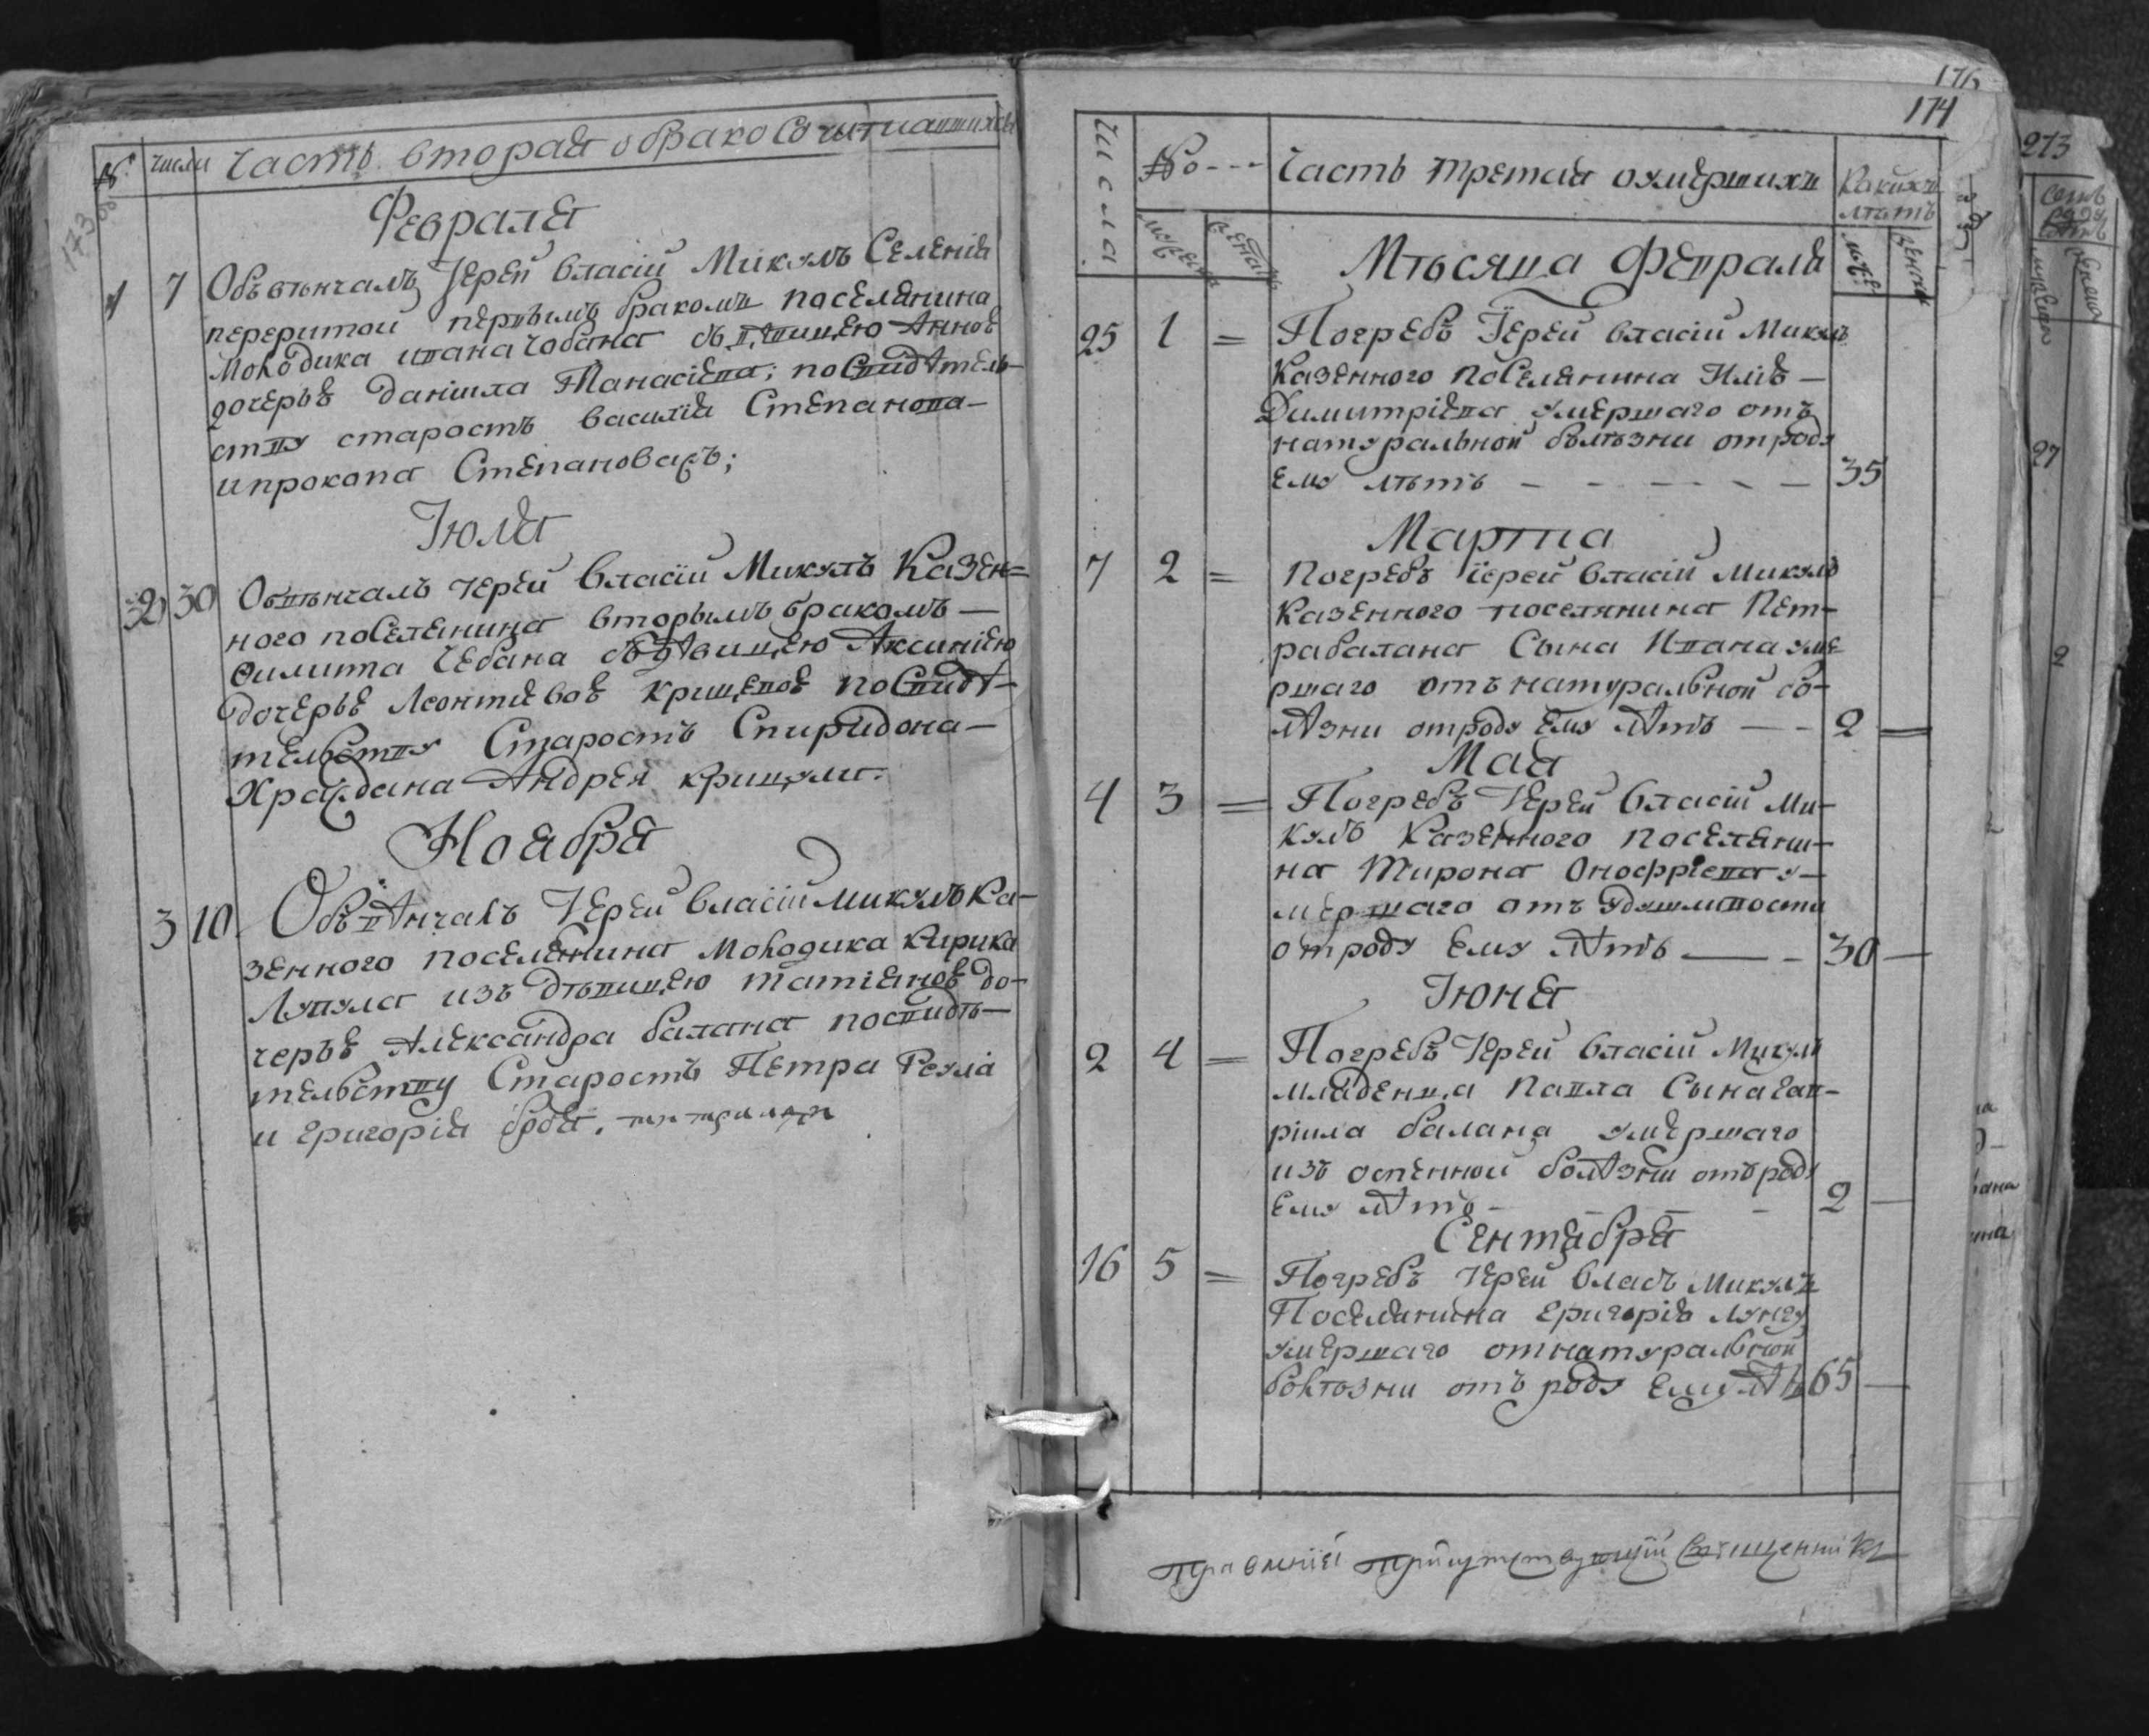 № числа Часть вторая о бракосочитавшихся
173 об
Февраля
1 7 Объвѣнчалъ Іерей Власій Микулъ Селенія
перериты первымъ бракомъ поселянина
молодика ивана чобана съ дѣвицею Анноѣ
дочерьѣ Даніила Танасіева; по свидѣтель-
ству старостъ василія Степанова-
и прокопа Степановахъ;
Іюля
2 30 Обвѣнчалъ іерей Власіи Микулъ Казен=
ного поселянина вторымъ бракомъ —
Филипа Чебана съ дѣвицею Аксиніею
дочерьѣ Леонтиевоѣ крицевоѣ по свидѣ-
тельству Старостъ Спиридона —
Андрея крицули.
Ноабря
3 10 Объвѣнчалъ Іерей Власіи микулъ Ка-
зенного поселянина молодика Кирика
Лупула изъ дѣвицею татіаноѣ до-
черьѣ Александра балана по свидѣ-
тельству Старостъ Петра
и григорія
176
174
Числа №о --- Часть третая о умершихъ Какихъ лѣтъ
Мѣсяца Февраля
25 1 = Погребъ Іерей власіи Микулъ
Казенного поселянина Иліѣ —
Димитріева умершаго отъ
натуральной болѣзни от роду
ему лѣтъ - - - - - - 35
Марта
7 2 = Погребъ іерей власіи Микулъ
Казенного поселянина Пет-
ра балана Сына Ивана уме-
ршаго отъ натуральной бо-
лѣзни отроду ему лѣтъ — - 2 =
Мая
4 3 = Погребъ Іерей Власіи Ми-
кулъ Казенного поселяни-
на Мирона Онофріева у-
мершаго отъ удушливости
отроду ему лѣтъ — - 30 —
Іюня
2 4 = Погребъ Іерей Власіи Микулъ
младенца Павла Сына гав-
ріила балана умершаго
изъ оспенной болѣзни отъ роду
ему лѣтъ - - - 2 —
Сентабря
16 5 = Погребъ Іерей власъ Микулъ
Поселянина григорія лунгу
умершаго от натуральной
болѣзни отъ роду ему лѣ 65 —
священникъ
213
27
2